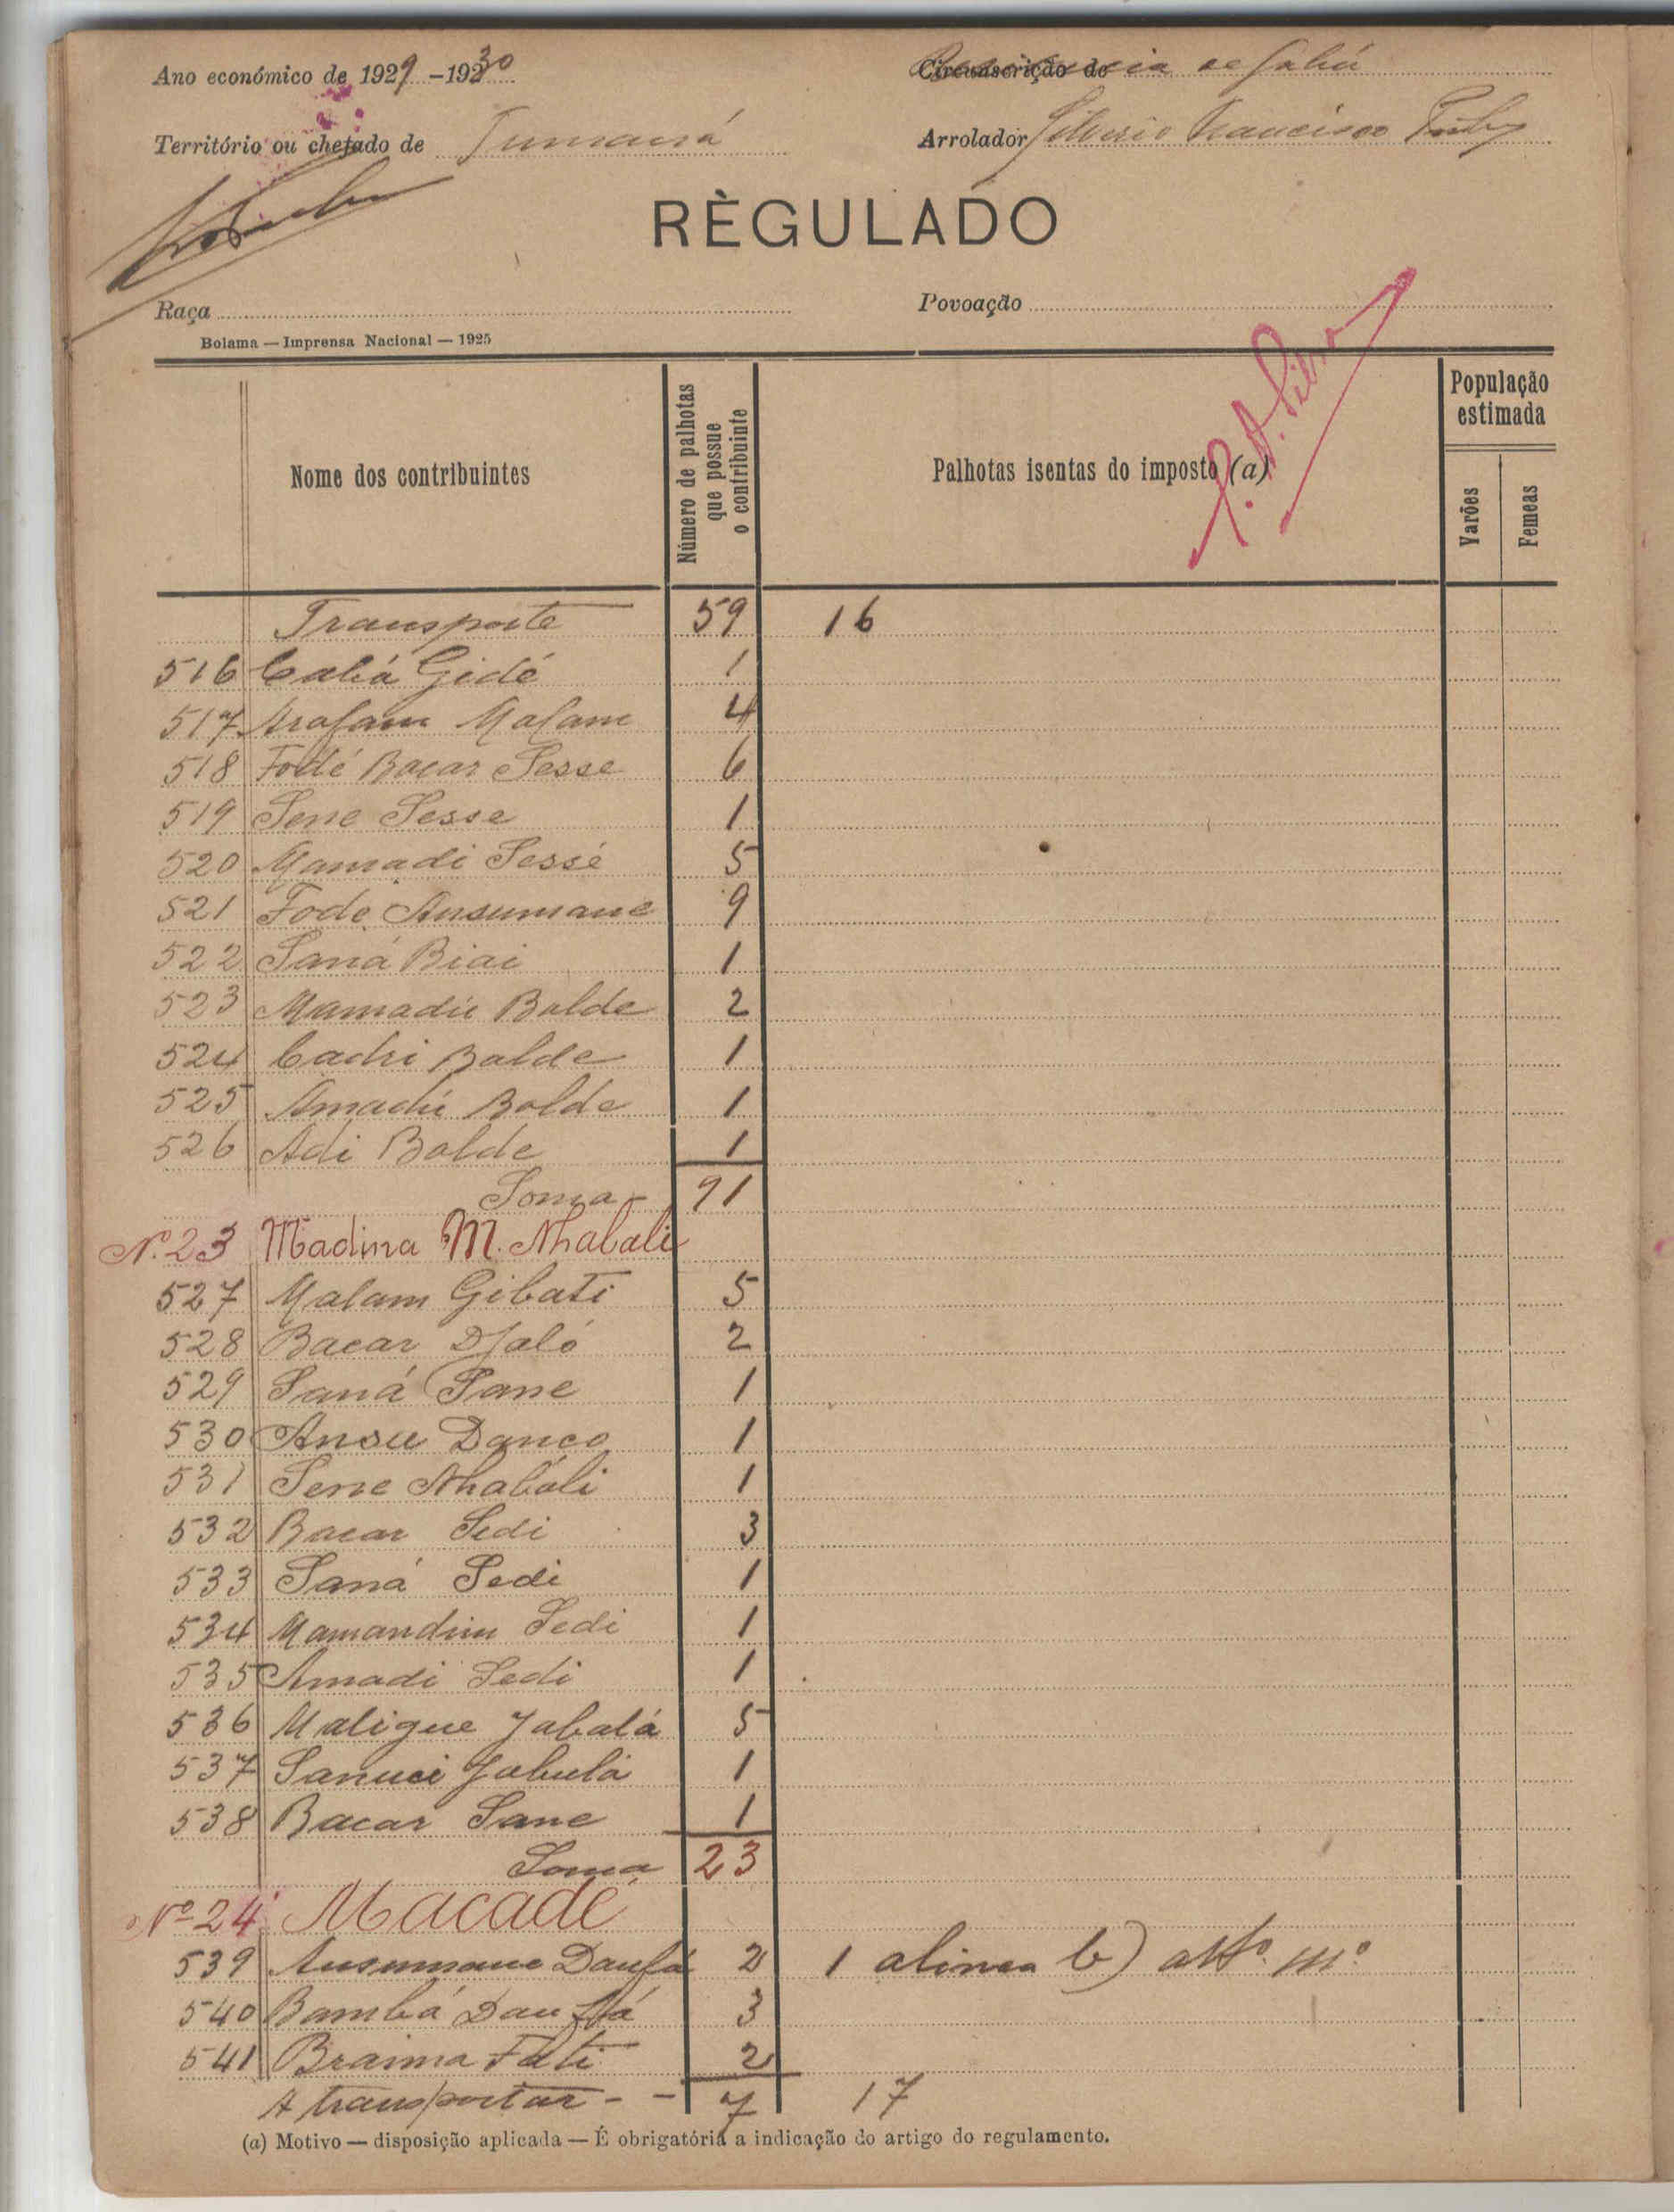 Ano económico de 1929-1930
Circunscrição de de Gabú
Território ou chefado de Tumaná
Arrolador Silverio Francisco
RÈGULADO
Raça
Povoação
Bolama — Imprensa Nacional — 1925
Nome dos contribuintes
Número de palhotas que possue o contribuinte
Palhotas isentas do imposto (a)
População estimada
Varões
Femeas
Transporte 59 16
516 Cabá Gidé 1
517 Arafam Malam 4
518 Fodé Bacar Sesse 6
519 Sene Sesse 1
520 Mamadi Sessé 5
521 Fode Ansumané 9
522 Saná Biai 1
523 Mamadú Balde 2
524 Cadri Balde 1
525 Amadú Balde 1
526 Adi Balde 1
Soma 91
Nº 23 Madina M. Nhabali
527 Malam Gibati 5
528 Bacar Djaló 2
529 Saná Sane 1
530 Ansu Danço 1
531 Sene Nhabali 1
532 Bacar Sedi 3
533 Saná Sedi 1
534 Mamandim Sedi 1
535 Amadi Sedi 1
536 Maligue Jabalá 5
537 Sanuci Jabulá 1
538 Bacar Sane 1
Soma 23
Nº 24 Macade
539 Ansumane Danfá 2 1 alinea b) attº. mº
540 Bambá Danfá 3
541 Braima Fati 2
A transportar - - 7 17
(a) Motivo — disposição aplicada — É obrigatória a indicação do artigo do regulamento.